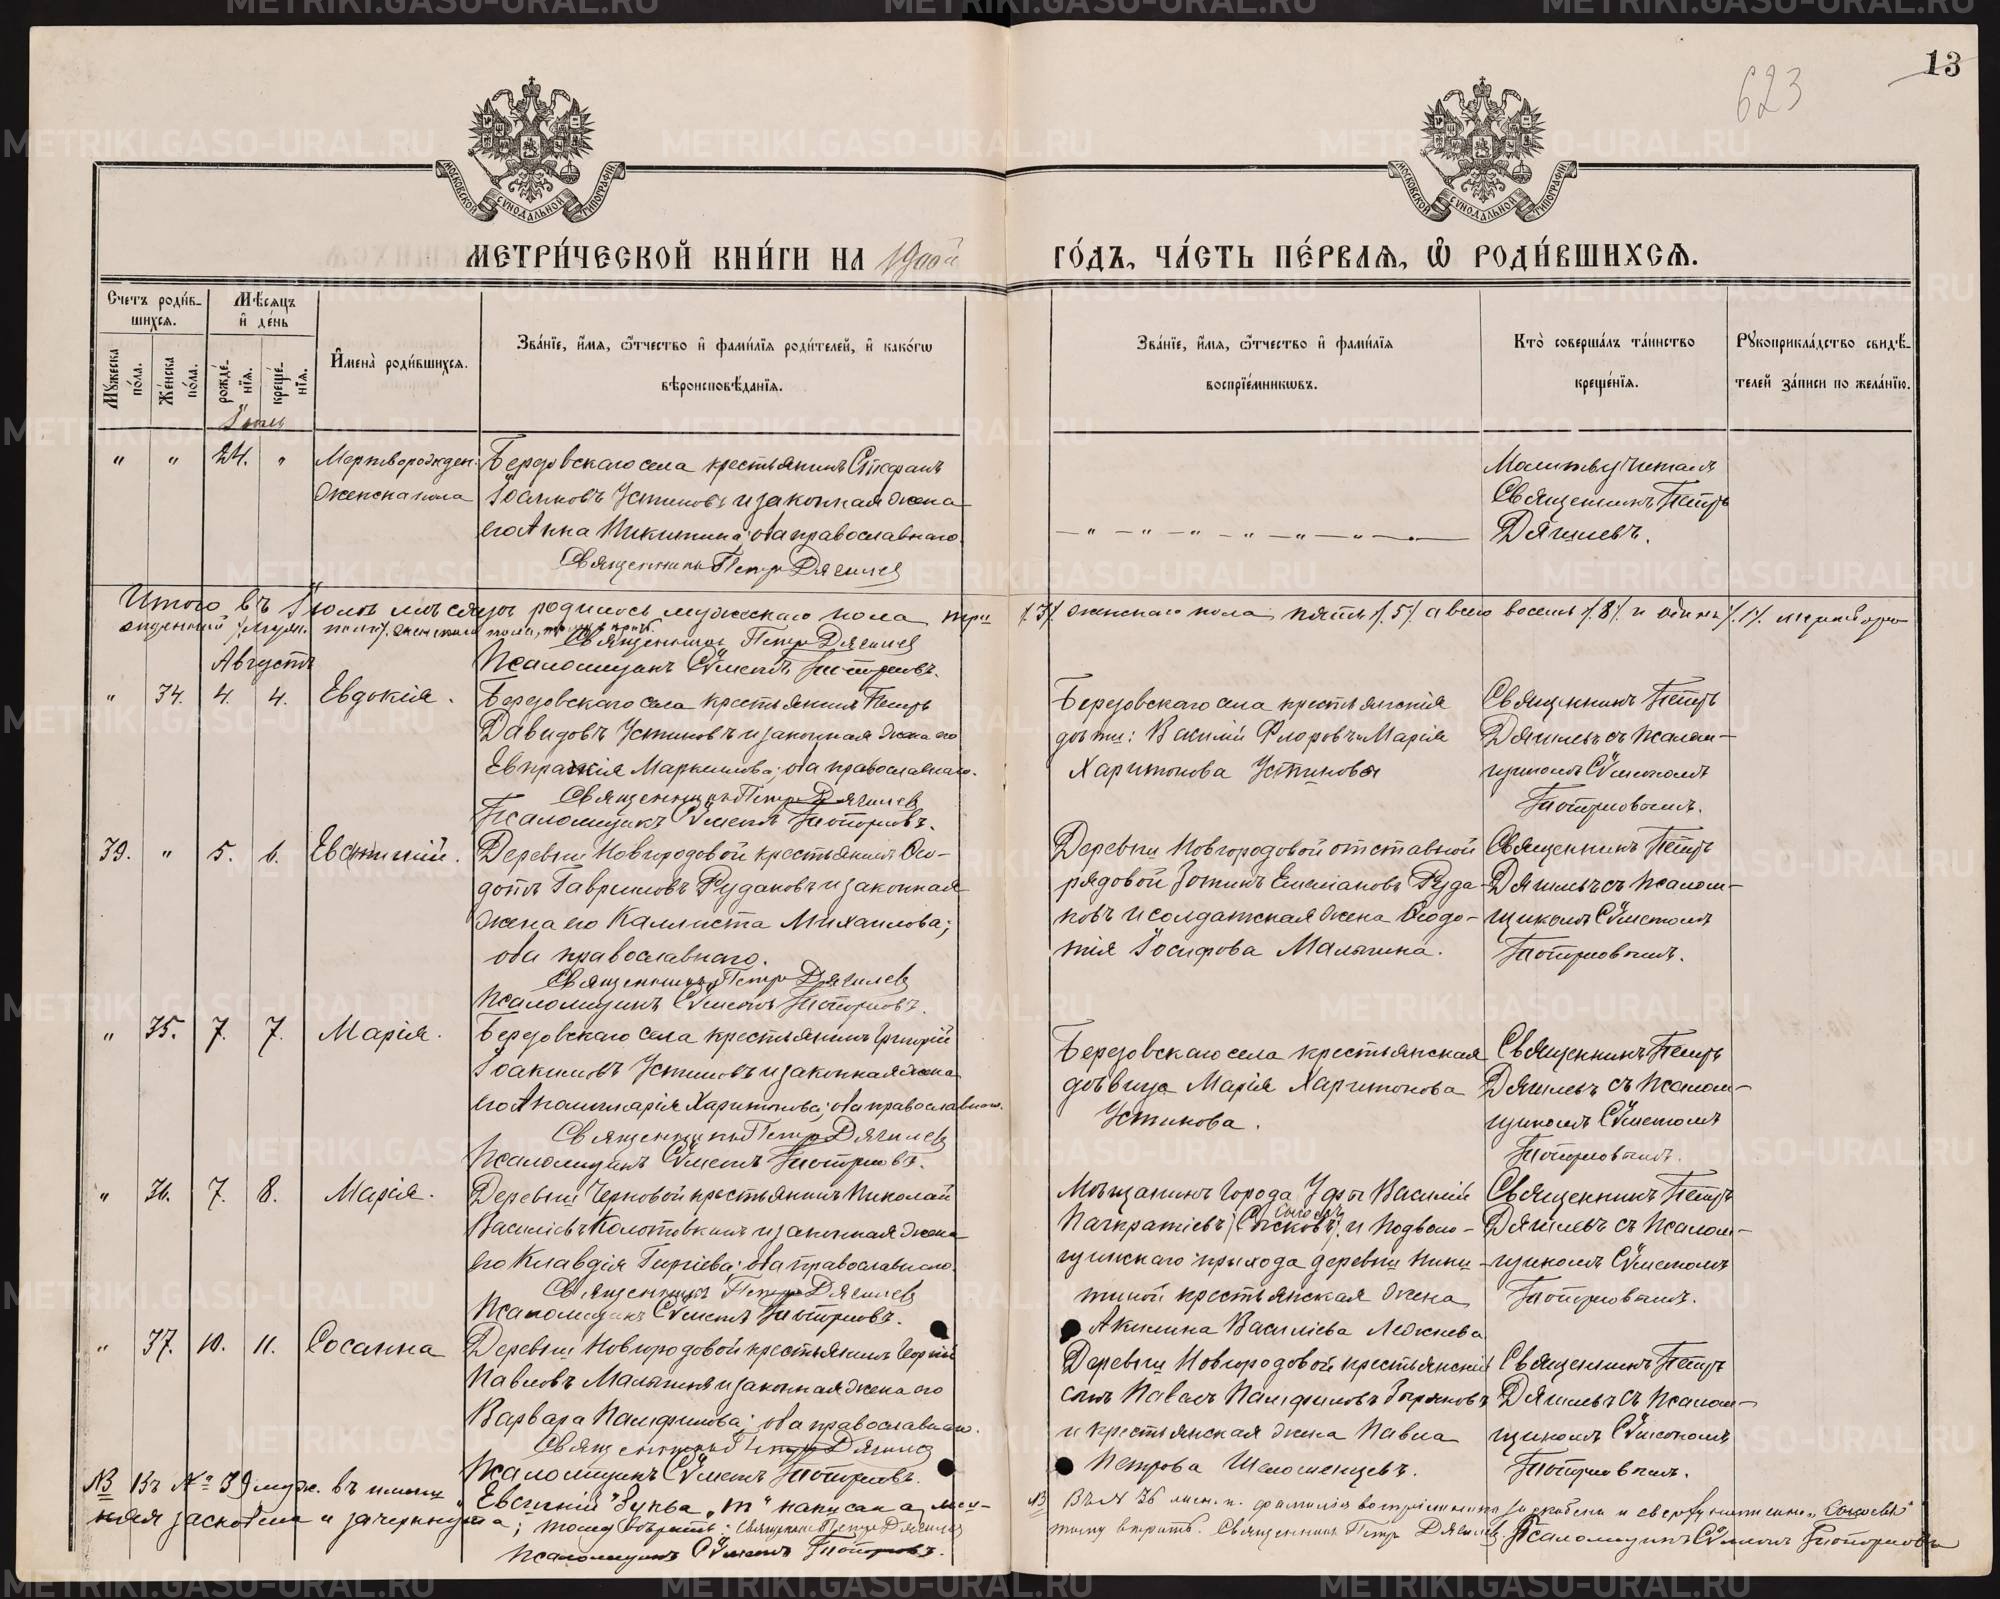 13
623
МОСКОВСКОЙ СУНОДАЛЬНОЙ ТИПОГРАФІИ
МОСКОВСКОЙ СУНОДАЛЬНОЙ ТИПОГРАФІИ
МЕТРИ́ЧЕСКОЙ КНИ́ГИ НА 1900й ГО́ДЪ, ЧА́СТЬ ПЕ́РВАѦ, Ѽ РОДИ́ВШИХСѦ.
Счетъ роди́вшихсѧ.
Мѣсѧцъ и҆ де́нь
Мꙋ́жеска по́ла.
Же́нска по́ла.
рожде́нїѧ.
креще́нїѧ.
И҆мена̀ роди́вшихсѧ.
Зва́нїе, и҆́мѧ, ѻ҆́тчество и҆ фами́лїѧ роди́телей, и҆ како́гѡ
вѣроисповѣ́данїѧ.
Зва́нїе, и҆́мѧ, ѻ҆́тчество и҆ фами́лїѧ
воспрїе́мникѡвъ.
Кто̀ соверша́лъ та́инство
креще́нїѧ.
Рꙋкоприкла́дство свидѣ́-
телей за́писи по жела́нїю.
Іюль
" " 24. " Мертворожден.
женска пола
Березовскаго села крестьянинъ Стефанъ
Іоанновъ Устиновъ и законная жена
его Анна Никитина; оба православнаго.
Священникъ Петръ Дягилев
— " — " — " — " — " — " —
Молитву читалъ
Священникъ Петръ
Дягилевъ.
Итого въ Іюлѣ мѣсяцѣ родилось мужескаго пола три /3/ женскаго пола пять /5/ а всего восемь /8/ и одинъ /1/ мертворо
Священникъ Петръ Дягилев
Псаломщикъ Сѵмеонъ Топорковъ.
Августъ
" 34. 4. 4. Евдокія.
Березовскаго села крестьянинъ Петръ
Давидовъ Устиновъ и законная жена его
Евпраксія Маркелова; оба православнаго.
Священникъ Петръ Дягилев
Псаломщикъ Сѵмеонъ Топорковъ.
Березовскаго села крестьянскія
дѣти: Василій Флоровъ и Марія
Харитонова Устиновы
Священникъ Петръ
Дягилевъ съ псалом-
щикомъ Сѵмеономъ
Топорковымъ.
39. " 5. 6. Евстигній.
Деревни Новгородовой крестьянинъ Ѳео-
дотъ Гавриловъ Рудаковъ и законная
жена его Каллиста Михаилова;
оба православнаго.
Священникъ Петръ Дягилев
Псаломщикъ Сѵмеонъ Топорковъ.
Деревни Новгородовой отставной
рядовой Зотикъ Емелиановъ Руда-
ковъ и солдатская жена Ѳеодо-
тія Іосифова Малыгина.
Священникъ Петръ
Дягилевъ съ псалом-
щикомъ Сѵмеономъ
Топорковымъ.
" 35. 7. 7. Марія.
Березовскаго села крестьянинъ Григорій
Іоакимовъ Устиновъ и законная жена
его Аполлинарія Харитонова; оба православнаго.
Священникъ Петръ Дягилев
Псаломщикъ Сѵмеонъ Топорковъ.
Березовскаго села крестьянская
дѣвица Марія Харитонова
Устинова.
Священникъ Петръ
Дягилевъ съ псалом-
щикомъ Сѵмеономъ
Топорковымъ.
" 36. 7. 8. Марія.
Деревни Черновой крестьянинъ Николай
Василіевъ Колотовкинъ и законная жена
его Клавдія Гиргіева; оба православнаго.
Священникъ Петръ Дягилев
Псаломщикъ Сѵмеонъ Топорковъ.
Мѣщанинъ города Уфы Василій
Панкратіевъ и Подволо-
щинскаго прихода деревни Ники-
тиной крестьянская жена
Акилина Василіева Лежнева
Священникъ Петръ
Дягилевъ съ псалом-
щикомъ Сѵмеономъ
Топорковымъ.
" 37. 10. 11. Сосанна
Деревни Новгородовой крестьянинъ Георгій
Павловъ Малыгинъ и законная жена его
Варвара Панфилова; оба православнаго.
Священникъ Петръ Дягилев
Псаломщикъ Сѵмеонъ Топорковъ.
Деревни Новгородовой крестьянскій
сынъ Павелъ Панфиловъ Зыряновъ
и крестьянская жена Павла
Петрова Шеломенцевъ.
Священникъ Петръ
Дягилевъ съ псалом-
щикомъ Сѵмеономъ
Топорковымъ.
NB Въ № 39 муж. въ имени "Евстигній" буква "т" написан
и зачеркнута; тому вѣрить: Священникъ Петръ Дягилев
Псаломщикъ Сѵмеонъ Топорковъ.
NB Въ № 36 жен. п. фамилія воспріемника
тому вѣрить. Священникъ Петръ Дягилев. Псаломщикъ Сѵмеонъ Топорковъ